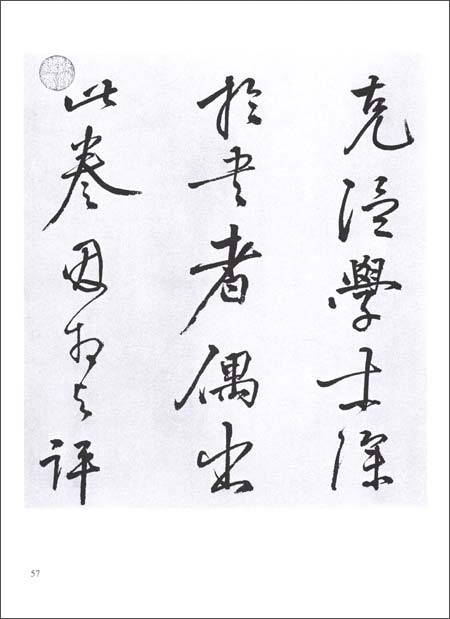 克温學士深
於書者偶出
此卷因相与評
57